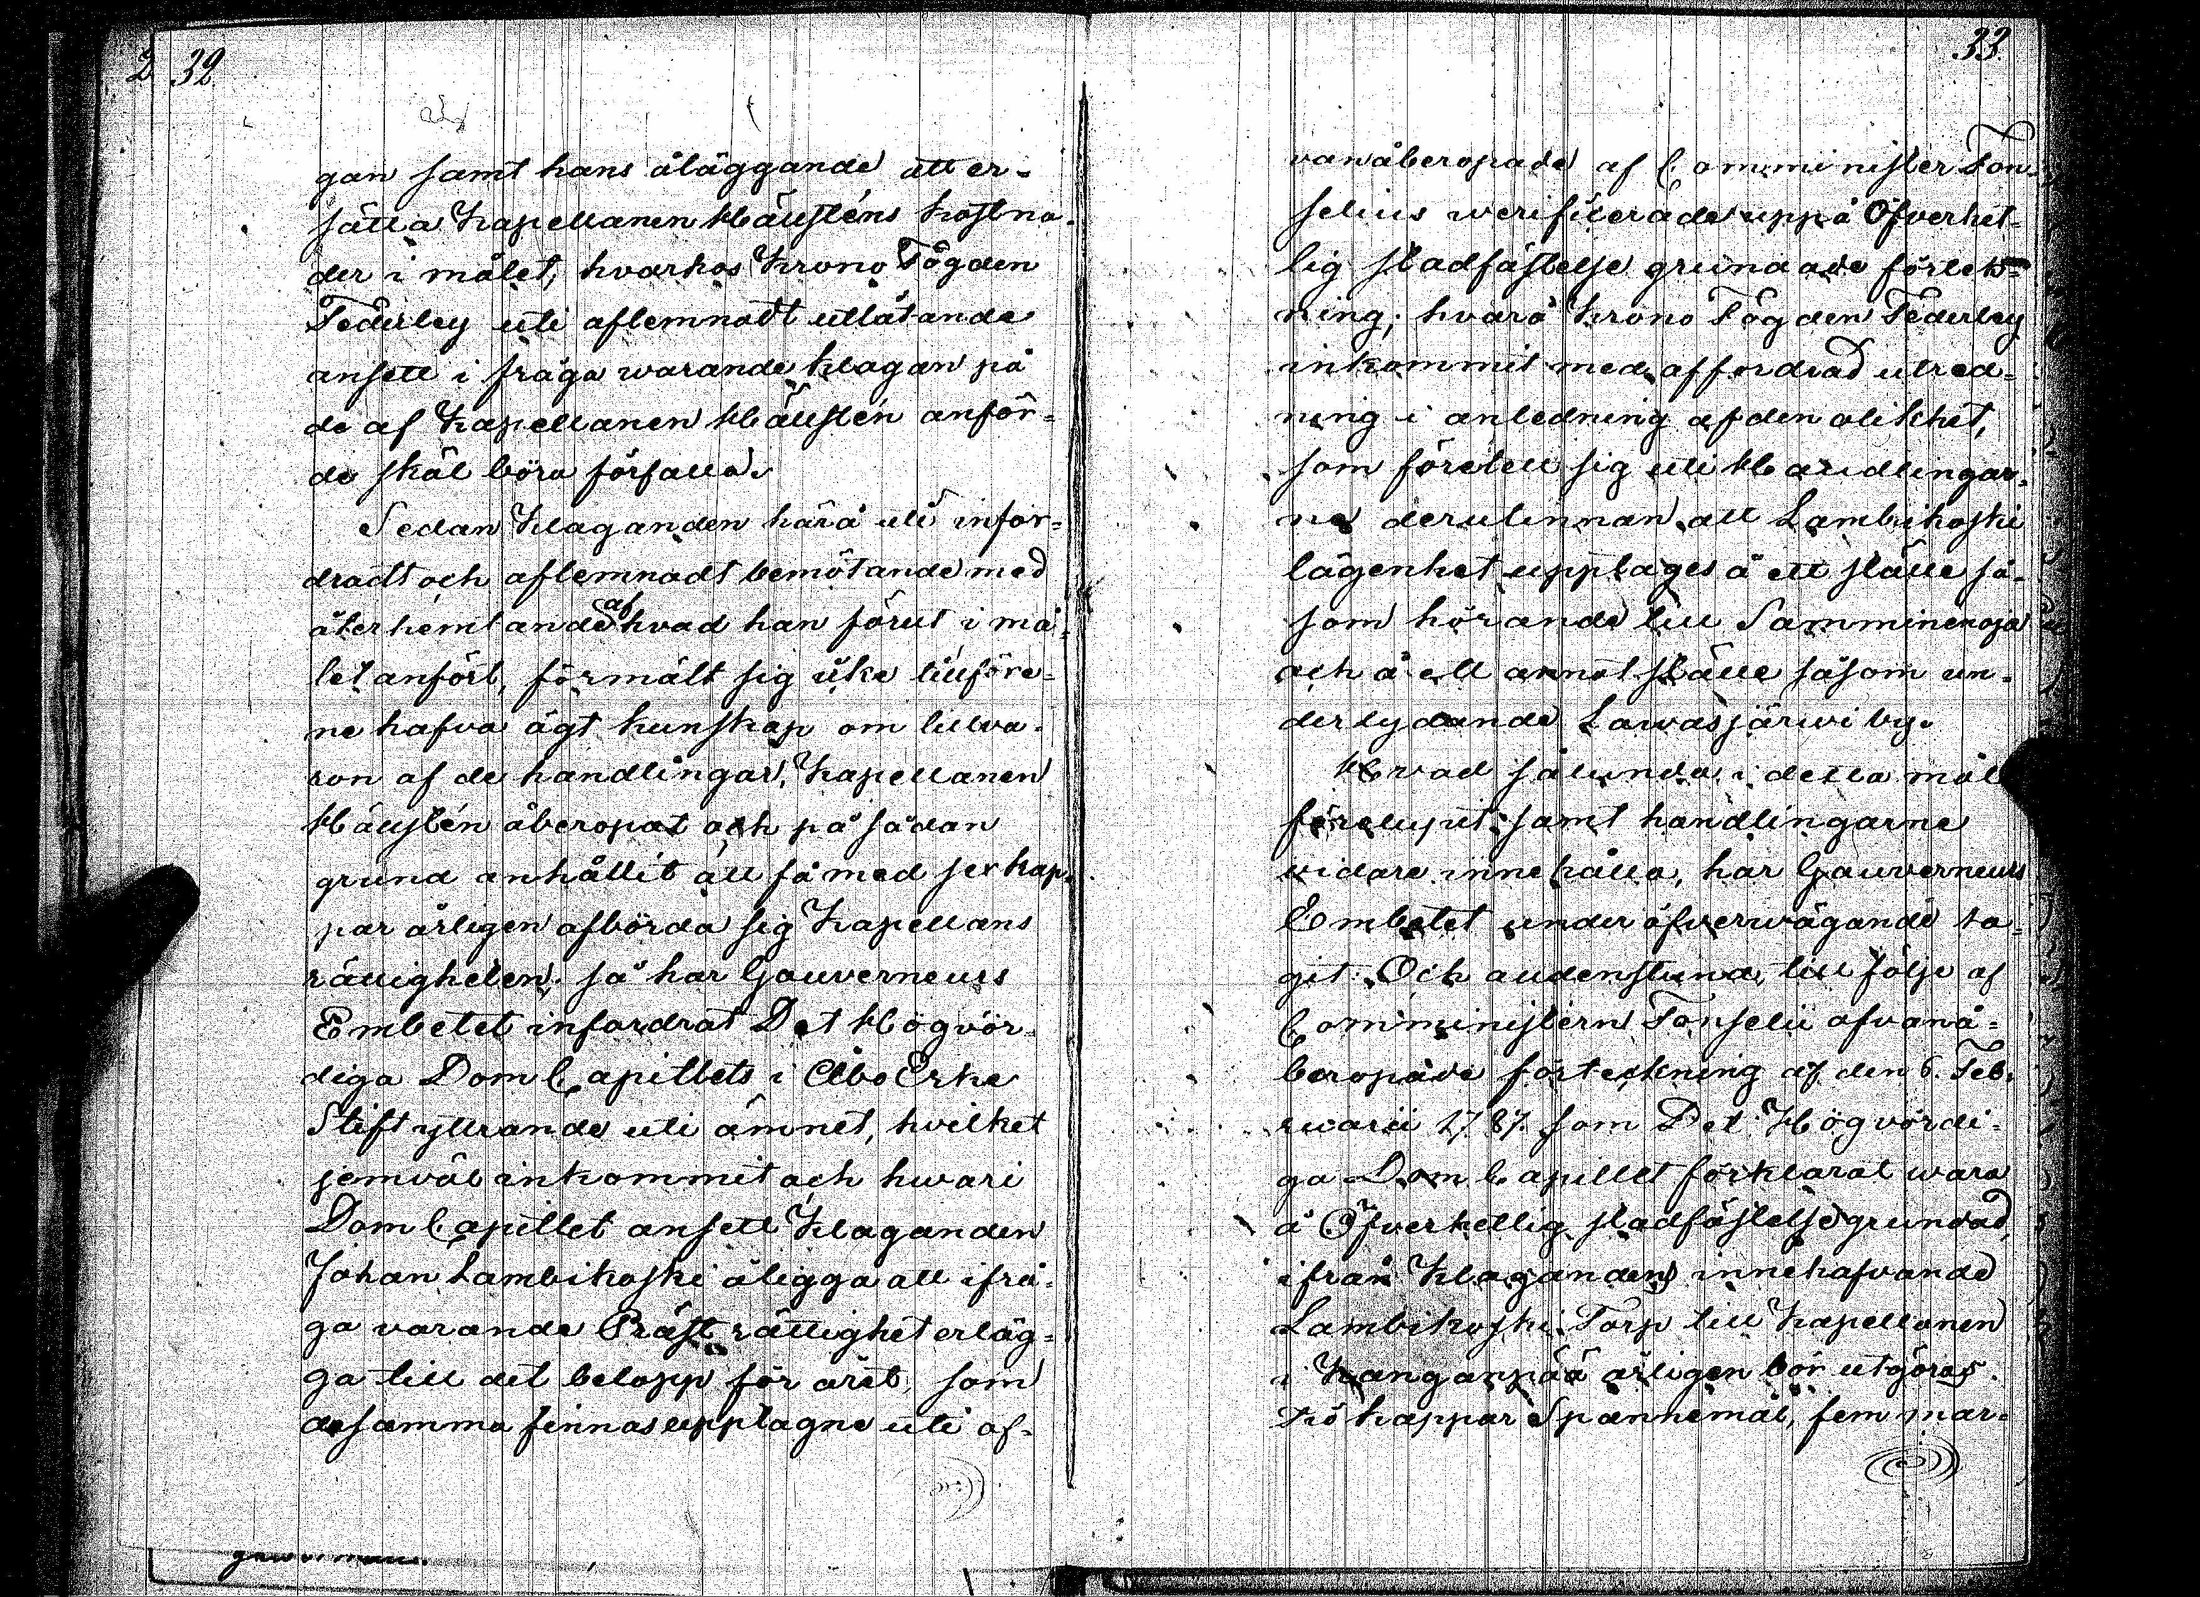 32
gan samt hans åläggande att er-
sätta Kapellanen Hällsténs kostna-
der i målet; hvarhos Krono Fogden
Federley uti aflemnadt utlåtande
ansett i fråga warande klagan på
de af Kapellanen Hällstén anför-
de skäl böra förfalla.
Sedan Klaganden härå uti infor-
dradt och aflemnadt bemötande med
återhemtande af hvad han förut i må-
let anfört, förmält sig icke tillföre-
ne hafva ägt kunskap om tillva-
ron af de handlingar, Kapellanen
Hällstén åberopat och på sådan
grund anhållit att få med sex kap-
par årligen afbörda sig Kapellans
rättigheten; så har Gouverneurs
Embetet infordrat Det Högvör-
diga Dom Capitlets i Åbo Erke
Stift yttrande uti ämnet, hvilket
jemväl inkommit och hwari
Dom Capitlet ansett Klaganden
Johan Lambikoski åligga att ifrå-
ga varande Präst rättighet erläg-
ga till det belopp för året, som
desamma finnas upptagne uti of-
33.
vanåberopade af Comminister Ton-
selius werificerade uppå Öfverhet-
lig stadfästelse grundade förtek-
ning; hvarå Krono Fogden Federley
inkommit med affordrad utred-
ning i anledning af den olikhet,
som företell sig uti Handlingar-
ne derutinnan att Lambikoski
lägenhet upptages å ett ställe så-
som hörande till Samminenoja
och å ett annat ställe såsom un-
derlydande Lawasjärwi by.
Hvad sålunda i detta mål
förelupit samt handlingarne
widare innehålla, har Gouverneurs
Embetet under öfverwägande ta-
git. Och alldenstund, till följe af
Comministern Tonselii ofvanå-
beropade förteckning af den 6. Feb-
ruarii 1787. som Det Högvördi-
ga Dom Capitlet förklarat wara
å Öfverhetlig stadfästelse grundad,
ifrån Klagandens innehafvande
Lambikoski Torp till Kapellanen
i Kanganpää årligen bör utgöras
två kappar Spannemål, fem mar-